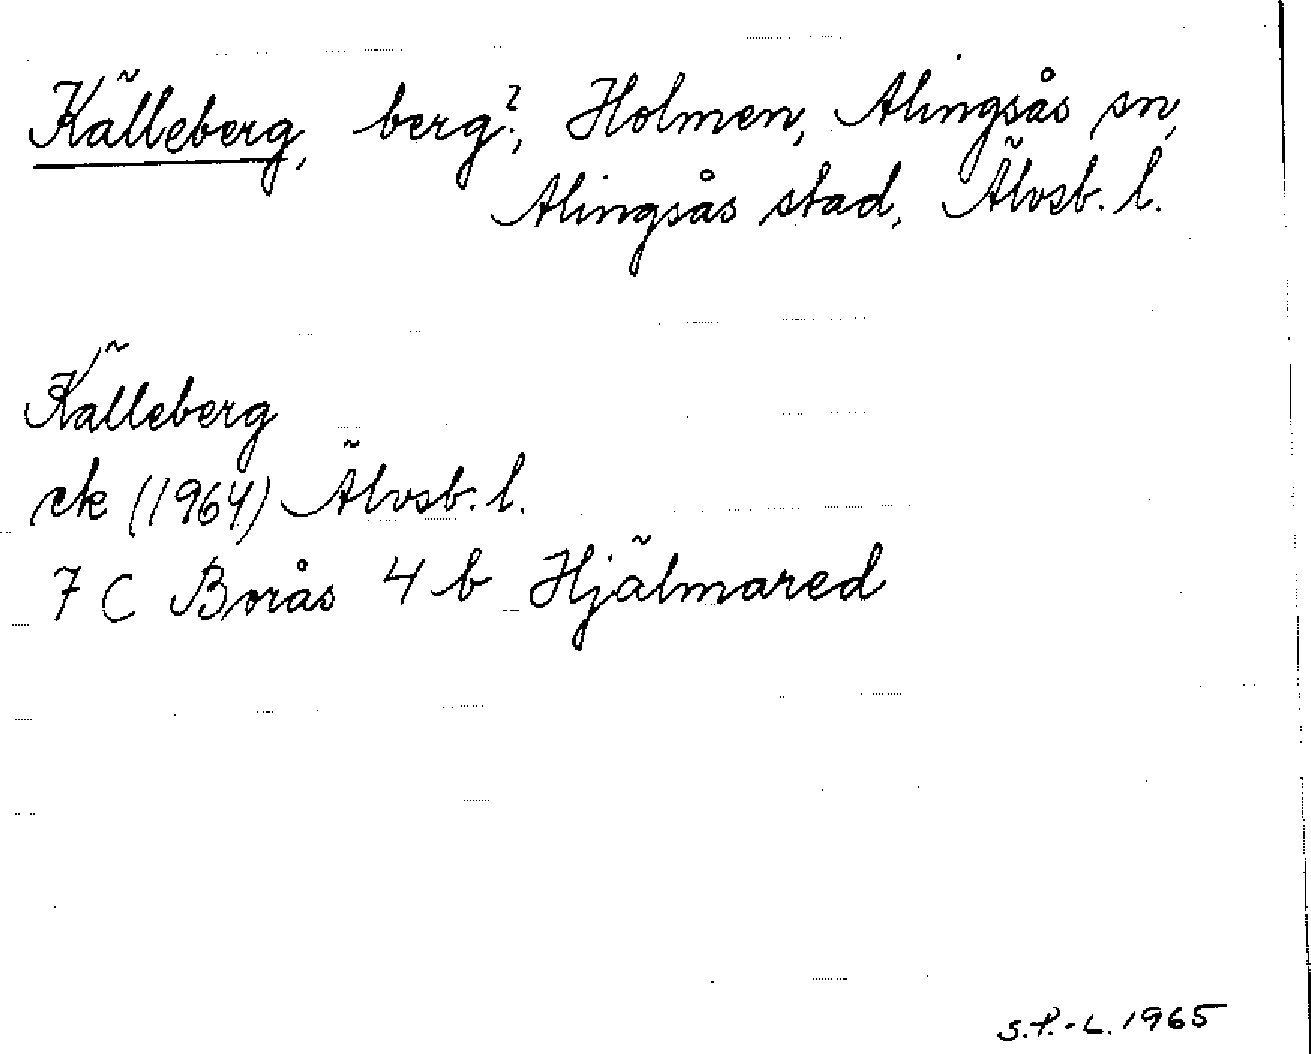 Källeberg, berg?, Holmen, Alingsås sn,
Alingsås stad, Älvsb. l.
Källeberg
ek (1964) Älvsb. l.
7 C Borås 4 b Hjälmared
S.P.-L. 1965